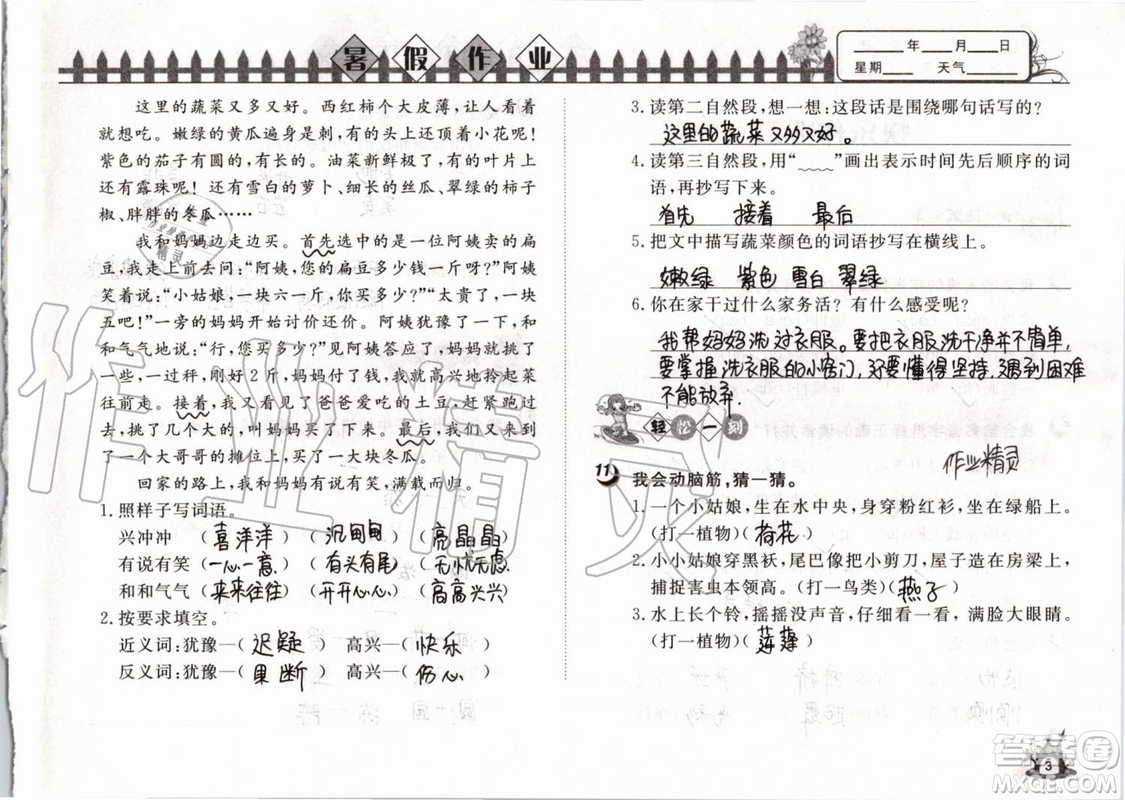 暑假作业
____年____月____日
星期____ 天气____
这里的蔬菜又多又好。西红柿个大皮薄，让人看着
就想吃。嫩绿的黄瓜遍身是刺，有的头上顶着小花呢！
紫色的茄子有圆的，有长的。油菜新鲜极了，有的叶片上
还有露珠呢！还有雪白的萝卜、细长的丝瓜、翠绿的柿子
椒、胖胖的冬瓜……
我和妈妈边走边选。首先选中的是一位阿姨卖的扁
豆，我走上前去问：“阿姨，您的扁豆多少钱一斤呀？”阿姨
笑着说：“小姑娘，一块六一斤，你买多少？”“太贵了，一块
五吧！”一旁的妈妈开始讨价还价。阿姨犹豫了一下，和
和气气地说：“行，您买多少？”见阿姨答应了，妈妈就挑了
一些，一过秤，刚好2斤，妈妈付了钱，我就高兴地拎起菜
往前走。接着，我一眼看见了爸爸爱吃的土豆，赶紧跑过
去，挑了几个大的，叫妈妈买了下来。最后，我们又在一个
大哥哥的摊位上，买了一大块冬瓜。
回家的路上，我和妈妈有说有笑，满载而归。
1.照样子写词语。
兴冲冲 （喜洋洋） （沉甸甸） （亮晶晶）
有说有笑（一心一意） （有头有尾） （无忧无虑）
和和气气（来来往往） （开开心心） （高高兴兴）
2.按要求填空。
近义词：犹豫—（迟疑） 高兴—（快乐）
反义词：犹豫—（果断） 高兴—（伤心）
3.读第二自然段，想一想：这段话是围绕哪句话写的？
这里的蔬菜又多又好。
4.读第三自然段，用“﹏﹏”画出表示时间先后顺序的词
语，再抄写下来。
首先 接着 最后
5.把文中描写蔬菜颜色的词语抄写在横线上。
嫩绿 紫色 雪白 翠绿
6.你在家干过什么家务活？有什么感受呢？
我帮妈妈洗过衣服。要把衣服洗干净并不简单，
要掌握洗衣服的小窍门，还要懂得坚持，遇到困难
不能放弃。
轻松一刻
11 我会动脑筋，猜一猜。
作业精灵
1.一个小姑娘，生在水中央，身穿粉红衫，坐在绿船上。
（打一植物）（荷花）
2.小小姑娘穿黑袄，尾巴像把小剪刀，屋子造在房梁上，
捕捉害虫本领高。（打一鸟类）（燕子）
3.水上长个铃，摇摇没声音，仔细看一看，满脸大眼睛。
（打一植物）（莲蓬）
作业精灵
答案卷
MXQE.COM
3